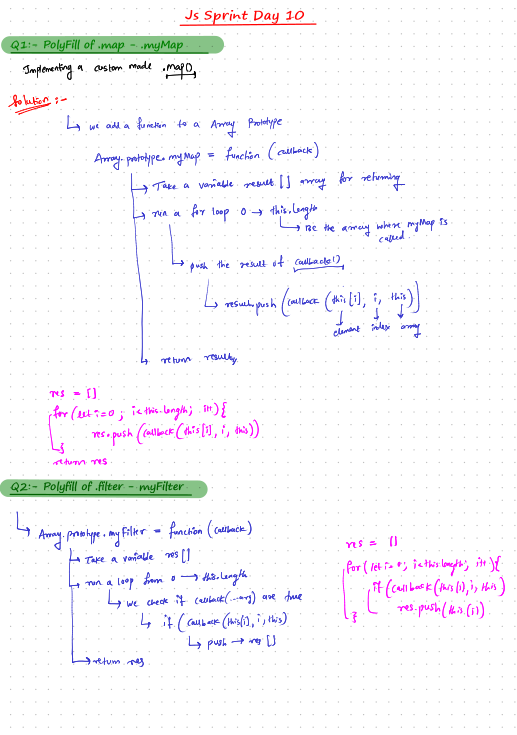 Js Sprint Day 10
Q1:- PolyFill of .map - .myMap
Implementing a custom made .map(),
Solution :-
we add a function to a Array Prototype
Array.prototype.myMap = function (callback)
Take a variable result [] array for returning
run a for loop 0 → this.length
Be the array where myMap is
called.
push the result of callback()
result.push (callback (this[i], i, this))
element index array
return result;
res = []
for (let i=0 ; i<this.length; i++) {
res.push (callback (this[i], i, this))
}
return res
Q2:- Polyfill of .filter - myFilter
Array.prototype.myFilter = function (callback)
Take a variable res []
run a loop from 0 → this.length
we check if callback(...arg) are true
if (callback (this[i], i, this)
push → res []
return res
res = []
for (let i=0; i<this.length; i++) {
if (callback (this[i), i, this)
res.push (this (i))
}